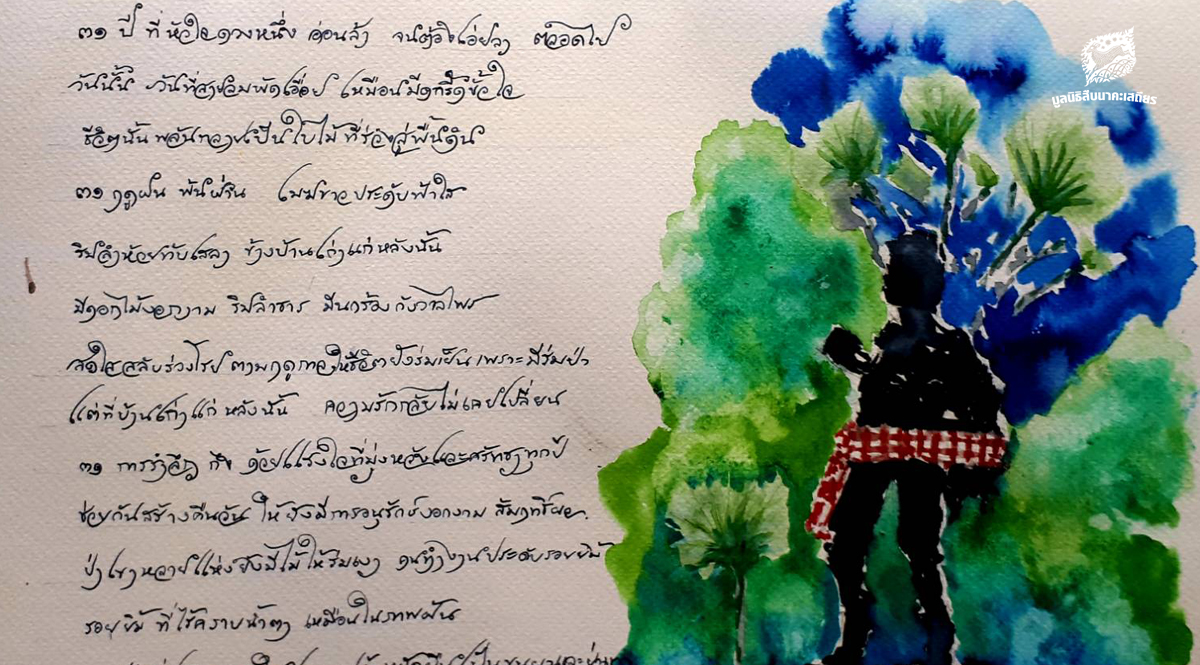 ๓๑ ปี ที่หัวใจดวงหนึ่ง อ่อนล้า
วันนั้น วันที่สายลมพัดเอื่อย เหมือนมีดกรีดขั้วใจ
ชีวิตนั้นพลันกลายเป็นใบไม้ ที่ร่วงสู่พื้นดิน
๓๑ ฤดูฝน พ้นผ่าน เมฆขาวประดับฟ้าใส
ริมลำห้วยทับเสลา ข้างบ้านเก่าแก่หลังนั้น
มีดอกไม้งอกงาม ริมลำธาร มีนกร้อง กังวาลไพร
สดใสสลับร่วงโรย ตามฤดูกาล ให้ชีวิตยังร่มเย็น เพราะมีร่มป่า
แต่ที่บ้านเก่าแก่ หลังนั้น ความรักกลับไม่เคยเปลี่ยน
๓๑ การรำลึก ด้วยแรงใจที่มุ่งหวังและศรัทธาทุกปี
ช่วยกันสร้างคืนวัน ให้ยังมีการอนุรักษ์งอกงาม
ป่าเขาหลายแห่งยังมีไม้ให้ร่มเงา คนทำงานประดับรอยยิ้ม
รอยยิ้ม ที่ไร้คราบน้ำตา เหมือนในภาพฝัน
มูลนิธิสืบนาคะเสถียร